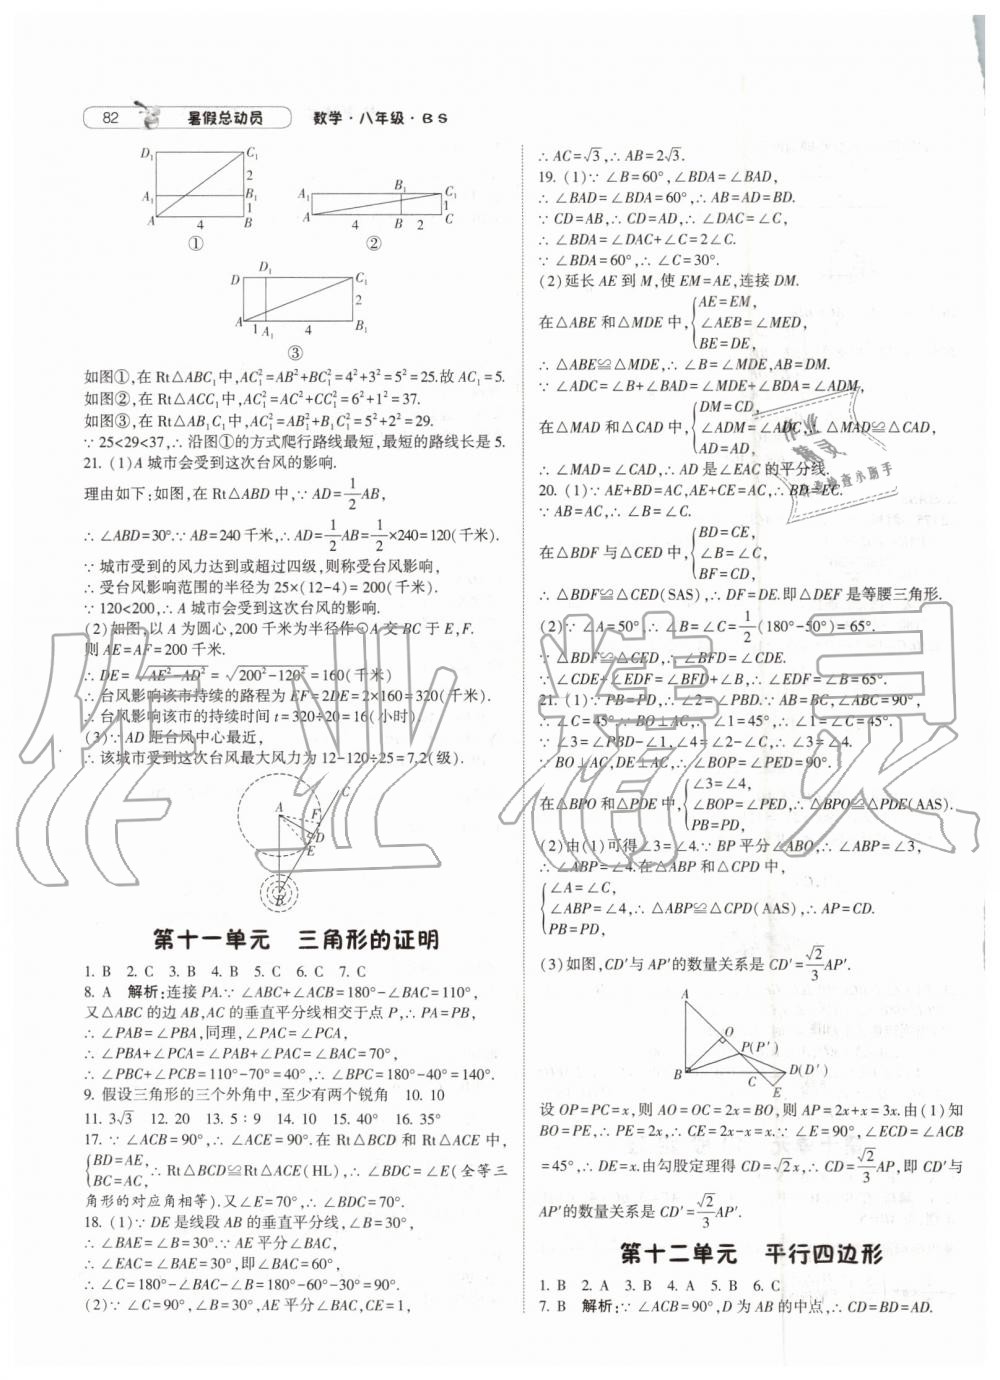 82 暑假总动员 数学·八年级·BS
D₁ C₁ 2 A₁ B₁ 1 A 4 B
①
B₁ C₁ A₁ 1 A 4 B 2 C
②
D D₁ C₁ 2 A 1 A₁ 4 B₁
③
如图①,在 Rt△ABC₁中,AC₁²=AB²+BC₁²=4²+3²=5²=25.故 AC₁=5.
如图②,在 Rt△ACC₁中,AC₁²=AC²+CC₁²=6²+1²=37.
如图③,在 Rt△AB₁C₁中,AC₁²=AB₁²+B₁C₁²=5²+2²=29.
∵25<29<37,∴沿图①的方式爬行路线最短,最短的路线长是 5.
21. (1)A 城市会受到这次台风的影响.
理由如下:如图,在 Rt△ABD 中,∵AD=1/2AB,
∴∠ABD=30°.∵AB=240 千米,∴AD=1/2AB=1/2×240=120(千米).
∵城市受到的风力达到或超过四级,则称受台风影响,
∴受台风影响范围的半径为 25×(12-4)=200(千米).
∵120<200,∴A 城市会受到这次台风的影响.
(2)如图,以 A 为圆心,200 千米为半径作⊙A 交 BC 于 E,F.
则 AE=AF=200 千米.
∴DE=√(AE²-AD²)=√(200²-120²)=160(千米)
∴台风影响该市持续的路程为 EF=2DE=2×160=320(千米).
∴台风影响该市的持续时间 t=320÷20=16(小时).
(3)∵AD 距台风中心最近,
∴该城市受到这次台风最大风力为 12-120÷25=7.2(级).
C A F D E B
第十一单元 三角形的证明
1. B 2. C 3. B 4. B 5. C 6. C 7. C
8. A 解析:连接 PA.∵∠ABC+∠ACB=180°-∠BAC=110°,
又△ABC 的边 AB,AC 的垂直平分线相交于点 P,∴PA=PB,
∴∠PAB=∠PBA,同理,∠PAC=∠PCA,
∴∠PBA+∠PCA=∠PAB+∠PAC=∠BAC=70°,
∴∠PBC+∠PCB=110°-70°=40°,∴∠BPC=180°-40°=140°.
9. 假设三角形的三个外角中,至少有两个锐角 10. 10
11. 3√3 12. 20 13. 5∶9 14. 10 15. 40° 16. 35°
17. ∵∠ACB=90°,∴∠ACE=90°.在 Rt△BCD 和 Rt△ACE 中,
{BD=AE,
BC=AC, ∴Rt△BCD≌Rt△ACE(HL),∴∠BDC=∠E(全等三
角形的对应角相等).又∠E=70°,∴∠BDC=70°.
18. (1)∵DE 是线段 AB 的垂直平分线,∠B=30°,
∴∠BAE=∠B=30°.∵AE 平分∠BAC,
∴∠EAC=∠BAE=30°,即∠BAC=60°,
∴∠C=180°-∠BAC-∠B=180°-60°-30°=90°.
(2)∵∠C=90°,∠B=30°,AE 平分∠BAC,CE=1,
∴AC=√3,∴AB=2√3.
19. (1)∵∠B=60°,∠BDA=∠BAD,
∴∠BAD=∠BDA=60°,∴AB=AD=BD.
∵CD=AB,∴CD=AD,∴∠DAC=∠C,
∴∠BDA=∠DAC+∠C=2∠C.
∵∠BDA=60°,∴∠C=30°.
(2)延长 AE 到 M,使 EM=AE,连接 DM.
在△ABE 和△MDE 中,{AE=EM,
∠AEB=∠MED,
BE=DE,
∴△ABE≌△MDE,∴∠B=∠MDE,AB=DM.
∵∠ADC=∠B+∠BAD=∠MDE+∠BDA=∠ADM,
在△MAD 和△CAD 中,{DM=CD,
∠ADM=∠ADC, ∴△MAD≌△CAD,
AD=AD,
∴∠MAD=∠CAD,∴AD 是∠EAC 的平分线.
20. (1)∵AE+BD=AC,AE+CE=AC,∴BD=EC.
∵AB=AC,∴∠B=∠C.
在△BDF 与△CED 中,{BD=CE,
∠B=∠C,
BF=CD,
∴△BDF≌△CED(SAS),∴DF=DE.即△DEF 是等腰三角形.
(2)∵∠A=50°,∴∠B=∠C=1/2(180°-50°)=65°.
∵△BDF≌△CED,∴∠BFD=∠CDE.
∵∠CDE+∠EDF=∠BFD+∠B,∴∠EDF=∠B=65°.
21. (1)∵PB=PD,∴∠2=∠PBD.∵AB=BC,∠ABC=90°,
∴∠C=45°.∵BO⊥AC,∴∠1=45°,∴∠1=∠C=45°.
∵∠3=∠PBD-∠1,∠4=∠2-∠C,∴∠3=∠4.
∵BO⊥AC,DE⊥AC,∴∠BOP=∠PED=90°.
在△BPO 和△PDE 中,{∠3=∠4,
∠BOP=∠PED,∴△BPO≌△PDE(AAS).
PB=PD,
(2)由(1)可得∠3=∠4.∵BP 平分∠ABO,∴∠ABP=∠3,
∴∠ABP=∠4.在△ABP 和△CPD 中,
{∠A=∠C,
∠ABP=∠4,∴△ABP≌△CPD(AAS),∴AP=CD.
PB=PD,
(3)如图,CD′与 AP′的数量关系是 CD′=√2/3AP′.
A O P(P′) B C D(D′) E
设 OP=PC=x,则 AO=OC=2x=BO,则 AP=2x+x=3x.由(1)知
BO=PE,∴PE=2x,∴CE=2x-x=x.∵∠E=90°,∠ECD=∠ACB
=45°,∴DE=x.由勾股定理得 CD=√2x,∴CD=√2/3AP,即 CD′与
AP′的数量关系是 CD′=√2/3AP′.
第十二单元 平行四边形
1. B 2. A 3. B 4. A 5. B 6. C
7. B 解析:∵∠ACB=90°,D 为 AB 的中点,∴CD=BD=AD.
作业精灵
作业
精灵
作业检查小助手